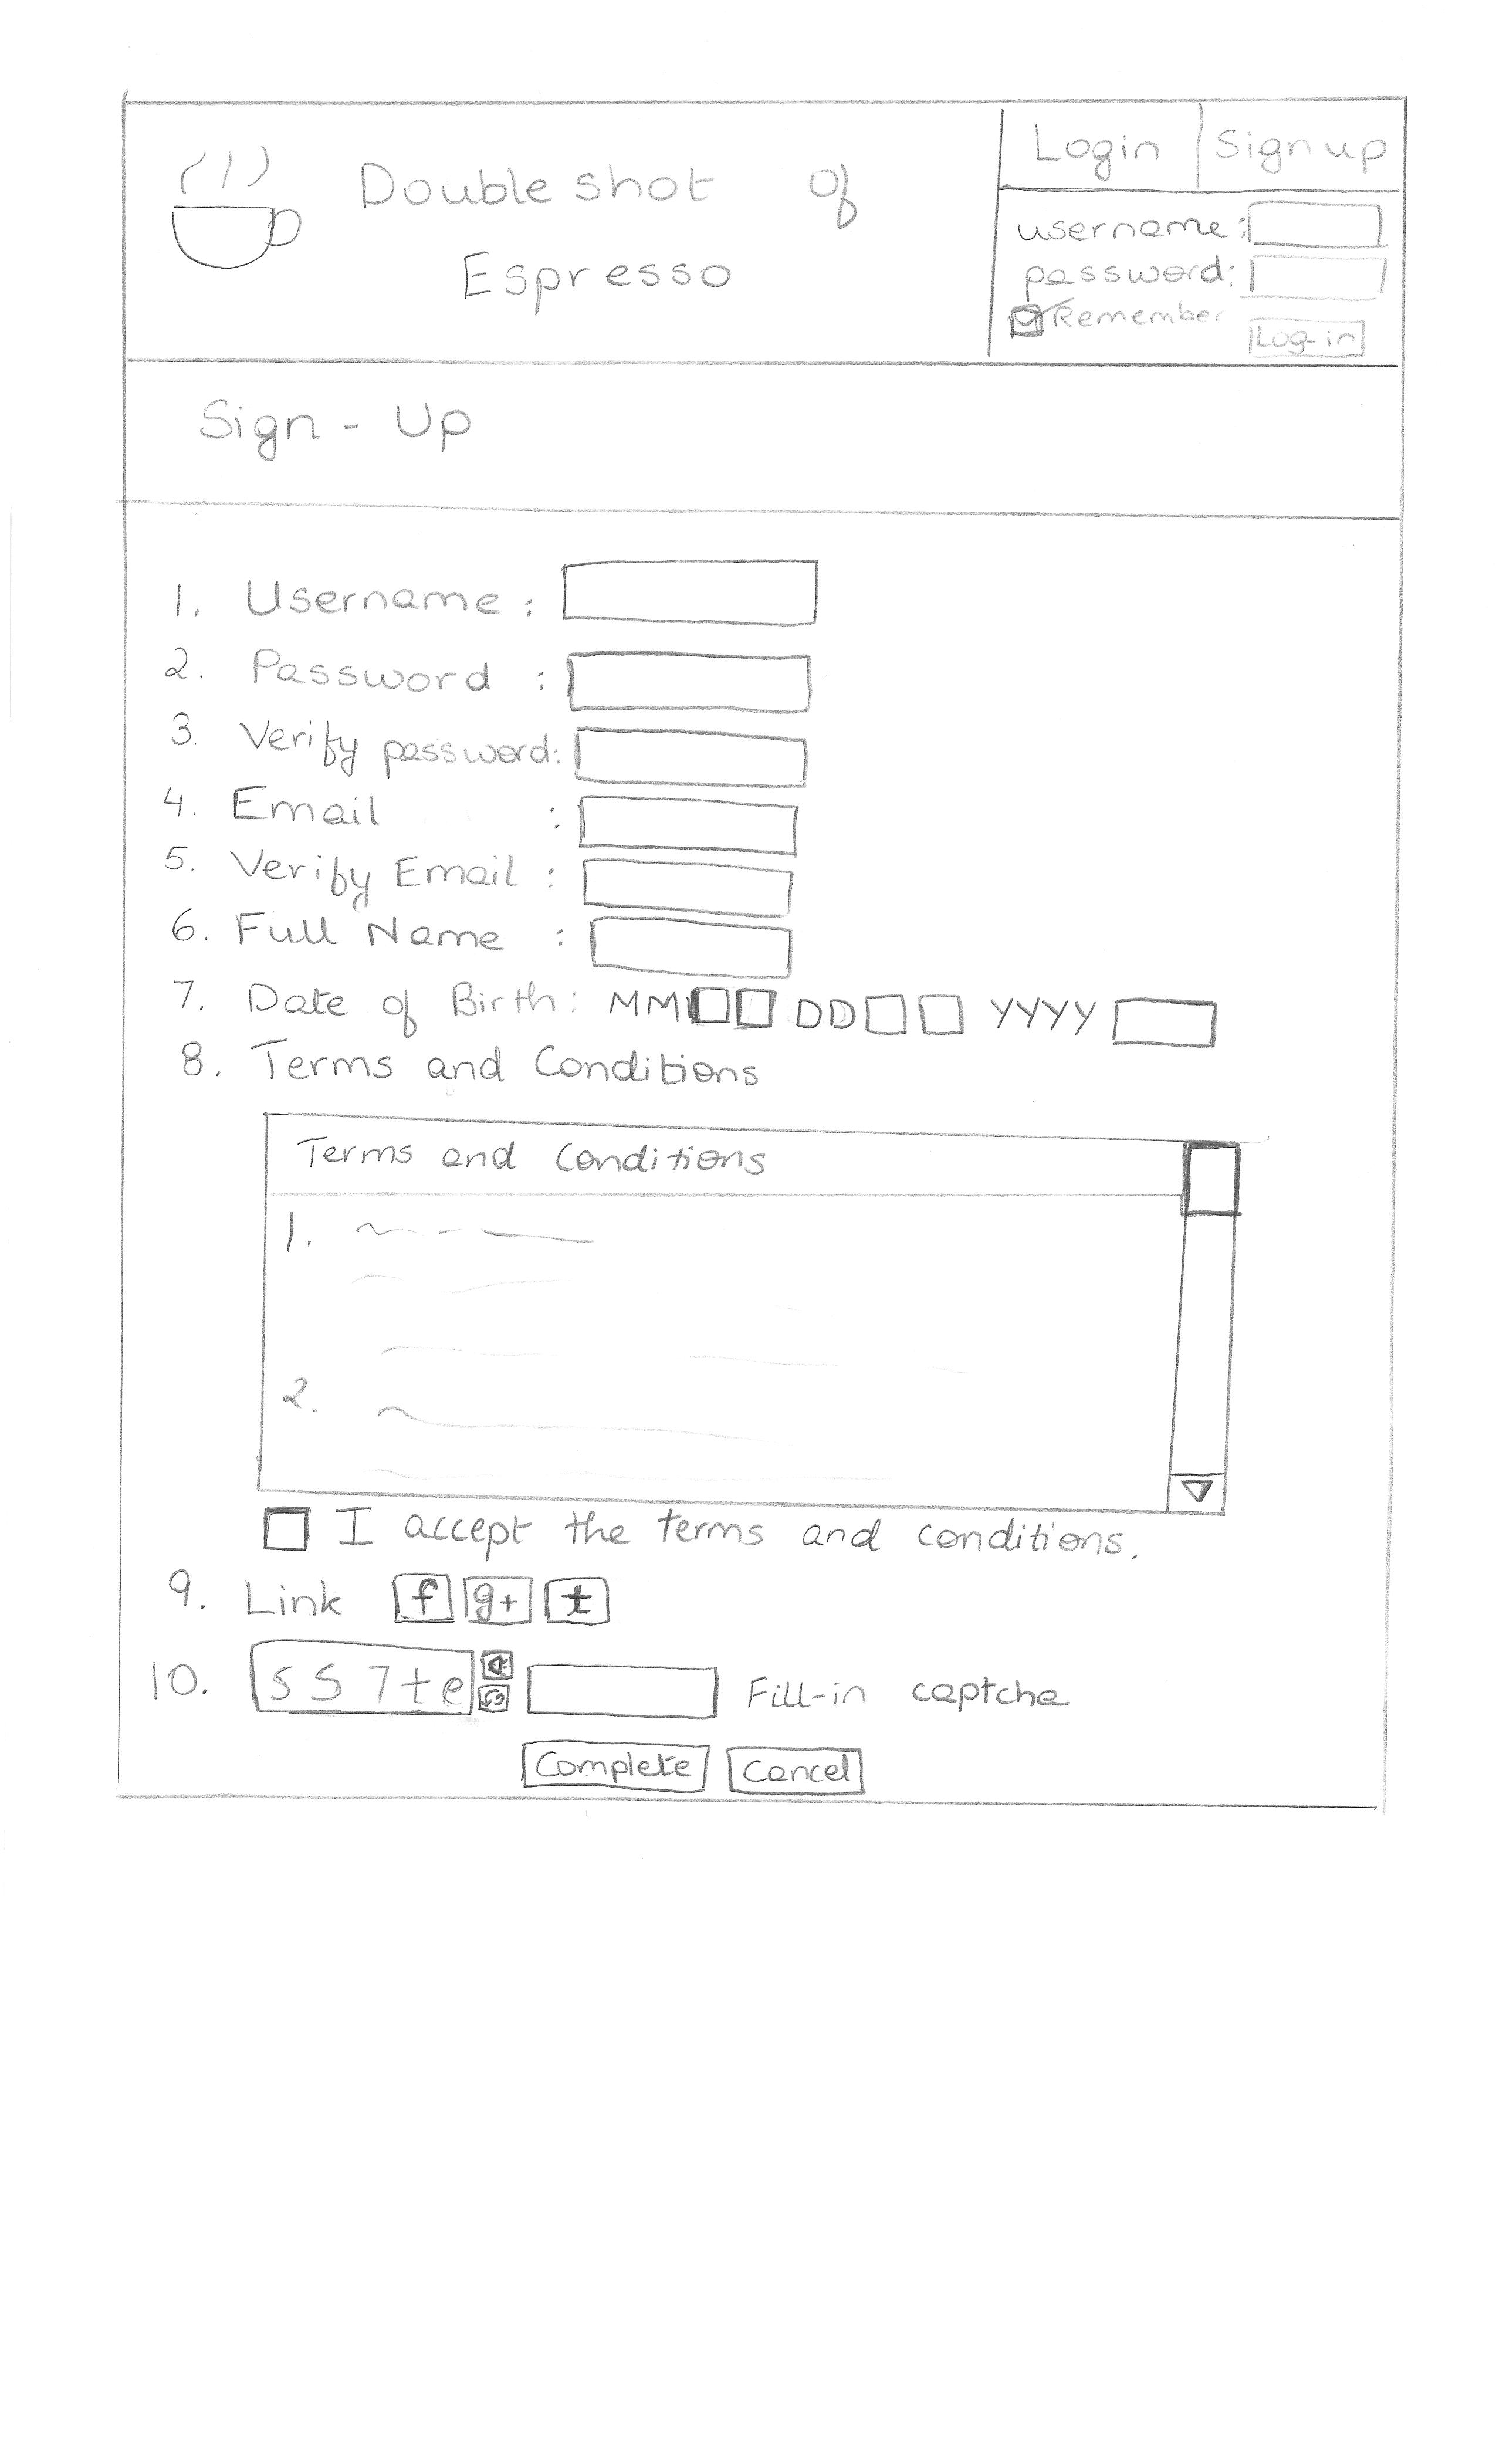 Login Sign up
Double shot of
Espresso
username:
password:
Remember
Log-in
Sign - Up
1. Username :
2. Password :
3. Verify password:
4. Email :
5. Verify Email :
6. Full Name :
7. Date of Birth: MM DD YYYY
8. Terms and Conditions
Terms and Conditions
1.
2.
I accept the terms and conditions.
9. Link f g+ t
10. S S 7 t e Fill-in captcha
Complete Cancel